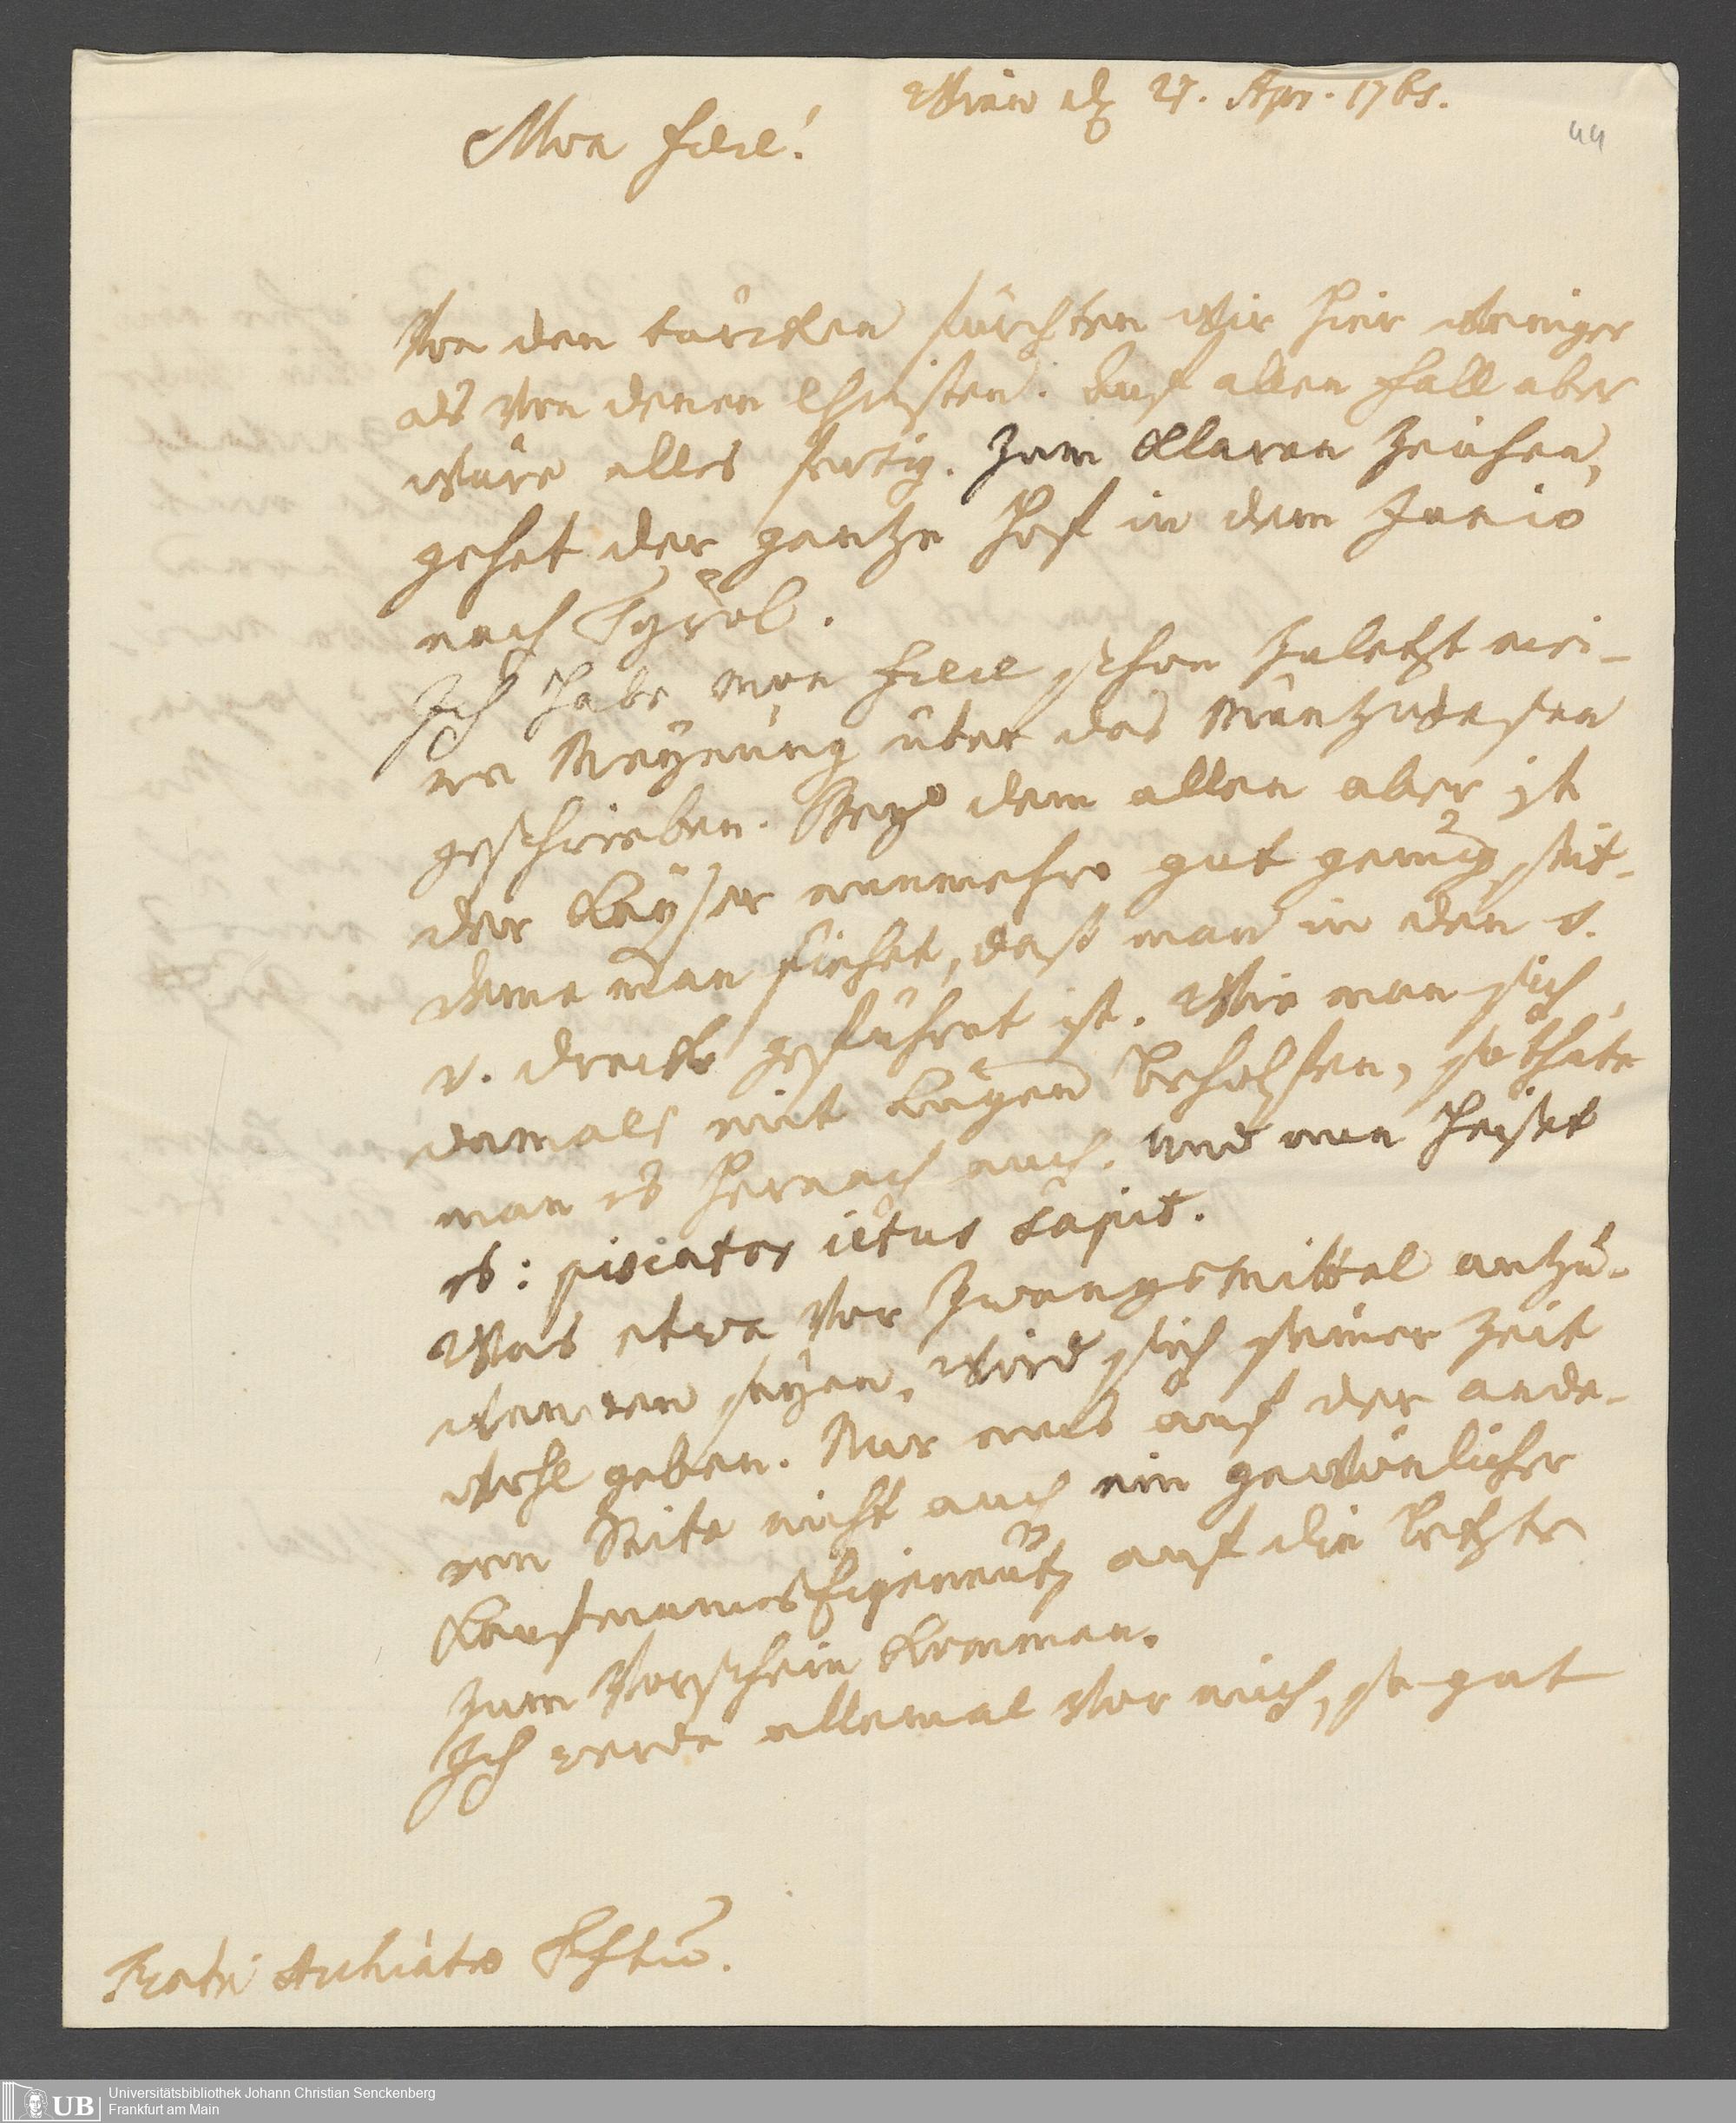 Wien d. 27. Apr. 1765.
44
Mon frere!
Von den türcken fürchten wir hier weniger
als von denen Christen. Auf allen fall aber
wäre alles fertig. Zum klaren Zeichen,
gehet der gantze Hof in dem Junio
nach Tyrol.
Ich habe mon frere schon zuletzt mei-
ne Meynung über das Müntzwesen
geschrieben. Bey dem allen aber ist
der Kayser nunmehro gut genug, seit-
deme man siehet, daß man in den s.
v. dreck geführet ist. Wie man sich
damals mit Lügen beholfen, so thäte
man es hernach auch. Und nun heiset
es: piscator ictus sapit.
Was etwa vor Zwangsmittel anzu-
wenden seyen, wird sich seiner Zeit
wohl geben. Nur mus auf der ande-
ren Seite nicht auch ein gewönlicher
KaufmannsEigennutz auf die letzte
zum Vorschein kommen.
Ich werde allemal vor mich, so gut
Fratri Archiatro
Universitätsbibliothek Johann Christian Senckenberg
UB Frankfurt am Main